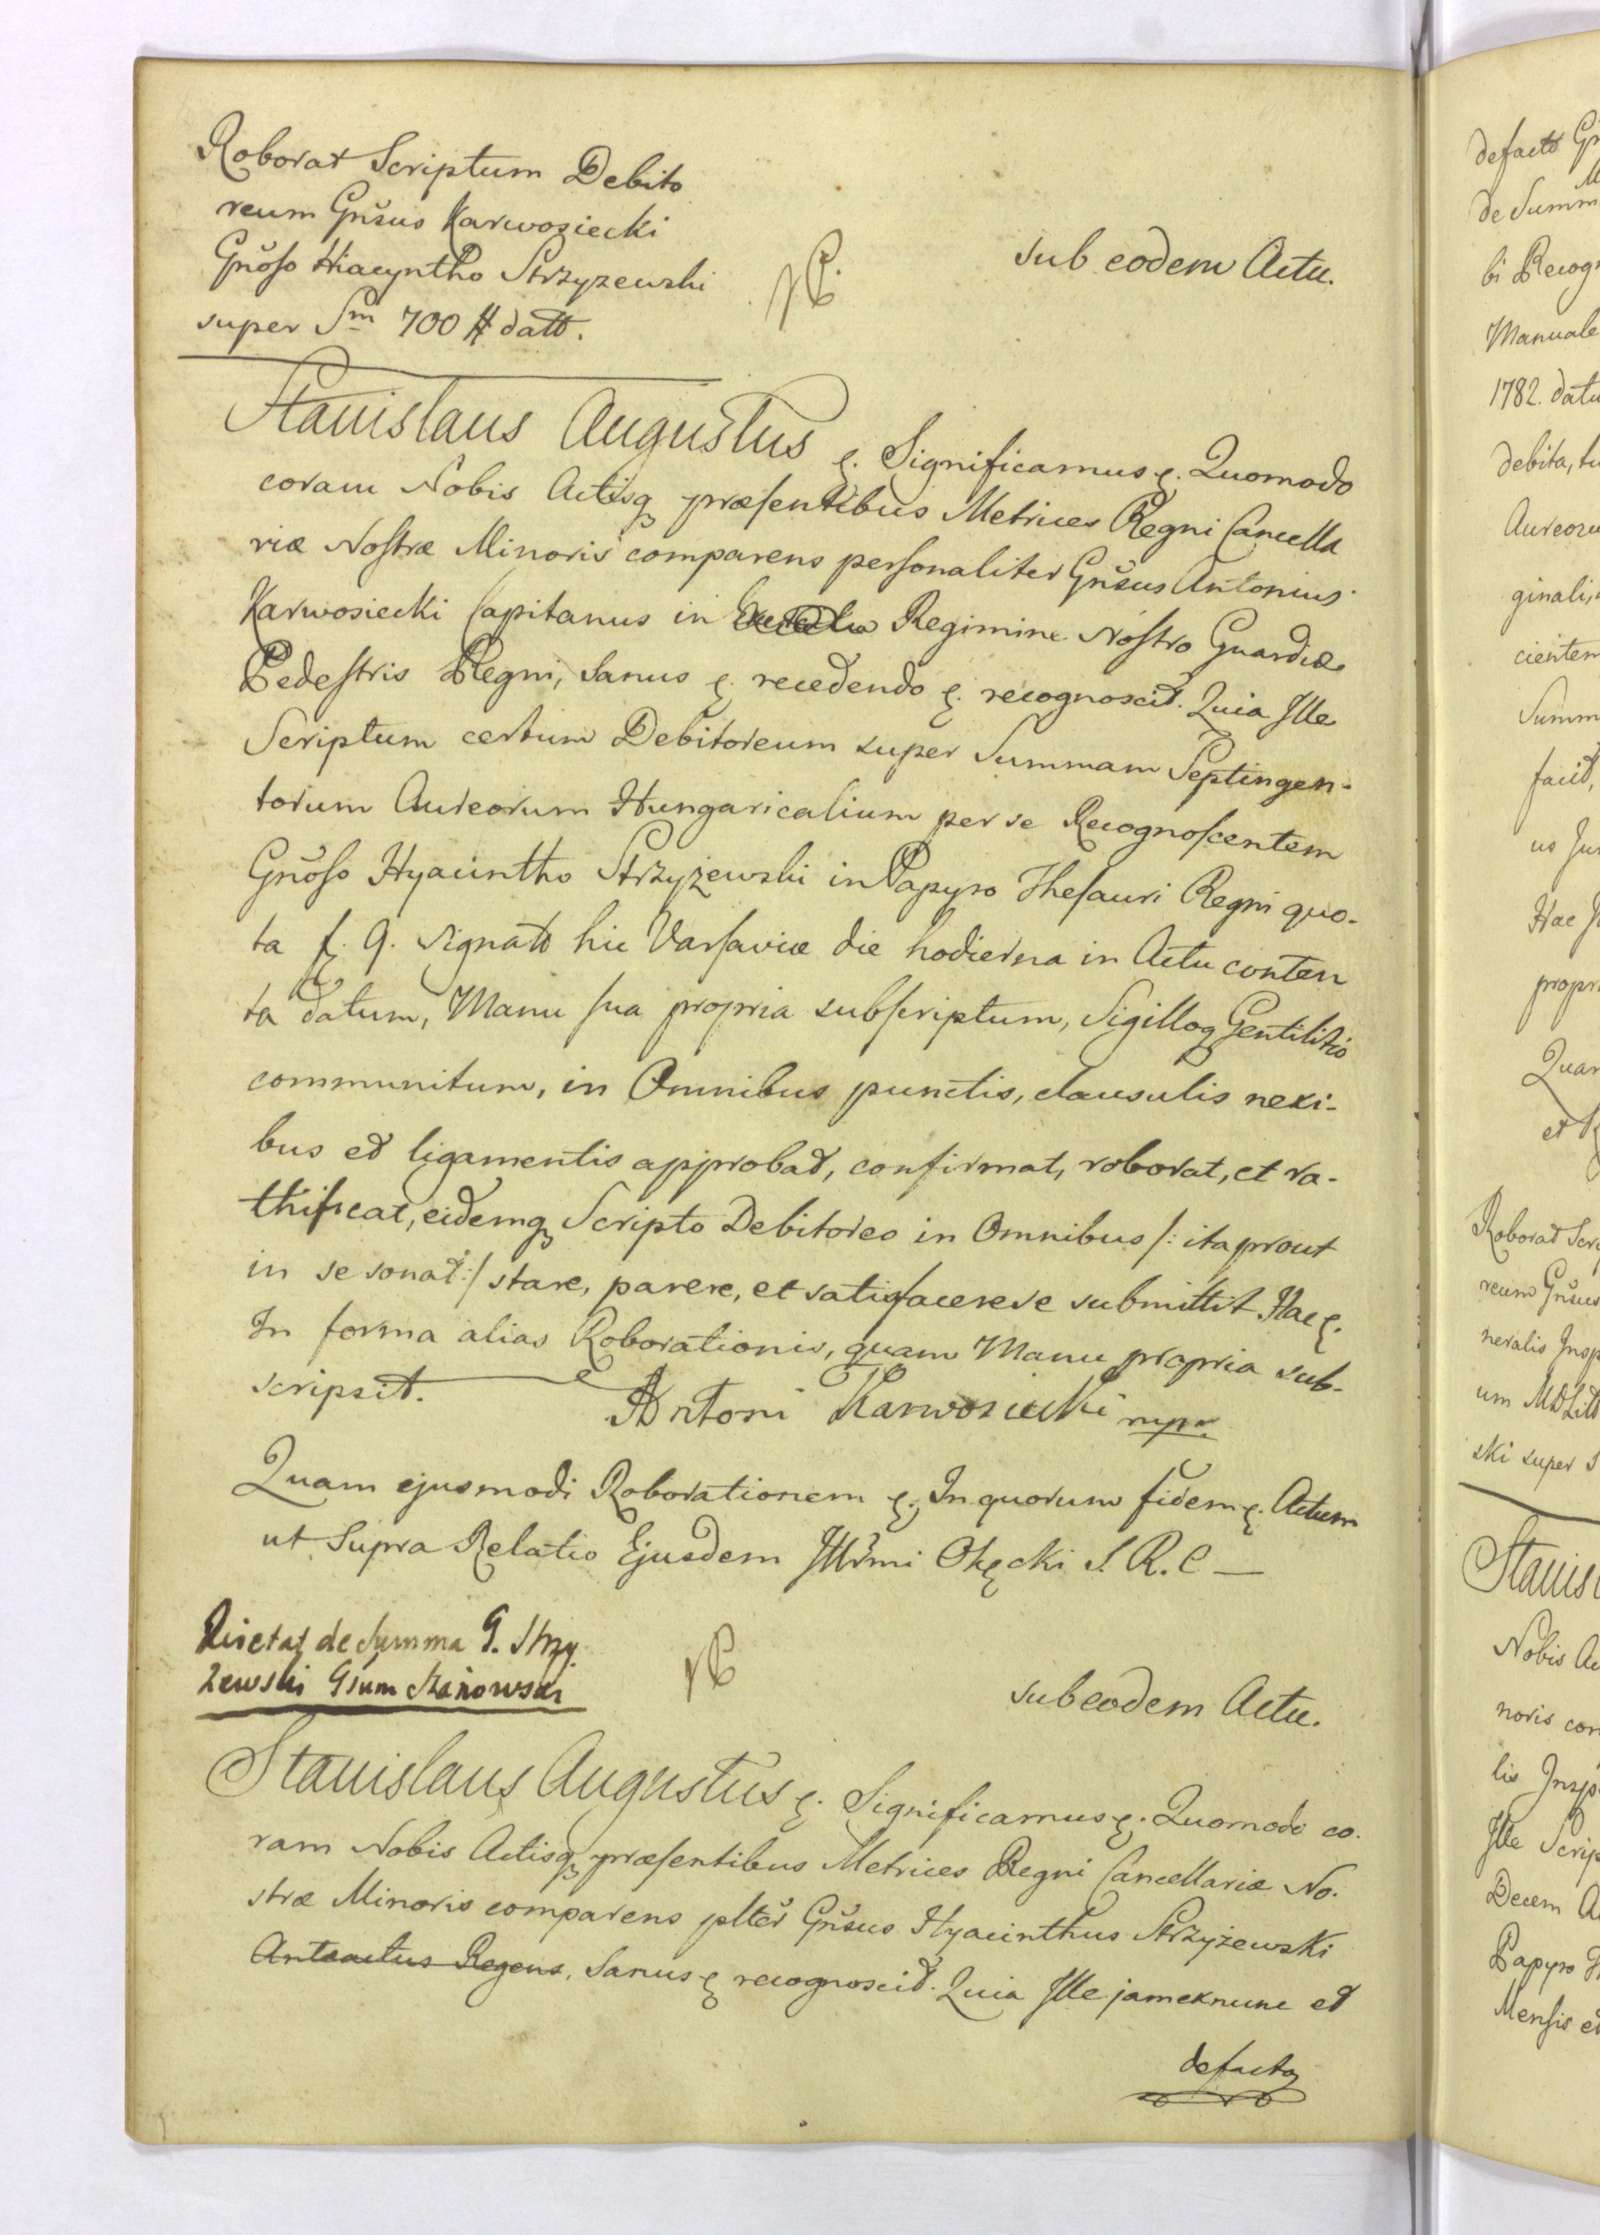 Roborat Scriptum Debito
reum Gnšus Karwosiecki
Gnŏso Hiacyntho Strzyzewski
super Sm 700 # datt.
sub eodem Actu.
Stanislaus Augustus &. Significamus &. Quomodo
coram Nobis Actisq præsentibus Metrices Regni Cancella
riæ Nostræ Minoris comparens personaliter Gnšus Antonius
Karwosiecki Capitanus in Regimine Nostro Guardiæ
Pedestris Regni, Sanus &. recedendo &. recognoscit. Quia Ille
Scriptum certum Debitoreum super Summam Septingen-
torum Aureorum Hungaricalium per se Recognoscentem
Gnŏso Hyacintho Strzyżewski in Papyro Thesauri Regni quo-
ta f. 9. signato hic Varsaviæ die hodierna in Actu conten
ta datum, Manu sua propria subscriptum, Sigilloq Gentilitio
communitum, in Omnibus punctis, clausulis nexi-
bus et ligamentis approbat, confirmat, roborat, et ra-
thificat, eidemq Scripto Debitoreo in Omnibus /: ita prout
in se sonat :/ stare, parere, et satisfacere se submittit. Hac &.
In forma alias Roborationis, quam Manu propria sub-
scripsit. Antoni Karwosiecki mpr.
Quam ejusmodi Roborationem &. In quorum fidem &. Actum
ut Supra Relatio Ejusdem Illrm̃i Okęcki S. R. C —
Quietat de Summa G. Strzy
żewski Gsum
sub eodem Actu.
Stanislaus Augustus &. Significamus &. Quomodo co-
ram Nobis Actisq præsentibus Metrices Regni Cancellariæ No-
stræ Minoris comparens pltěr Gnšus Hyacinthus Strzyżewski
Anteactus Regens, Sanus & recognoscit. Quia Ille jam ex nunc et
defacto
defacto
de Summ
bi Recogn
Manuale
1782. datu
debita, tu
Aureoru
ginali,
cientem
Summ
facit,
us Jur
Hac
propri
Quam
et
Roborat Scri
reum Gnšus
neralis Insp
um
ski super S
Stanisl
Nobis Ac
noris com
lis Insp
Ille Scrip
Decem A
Papyro Th
Mensis et